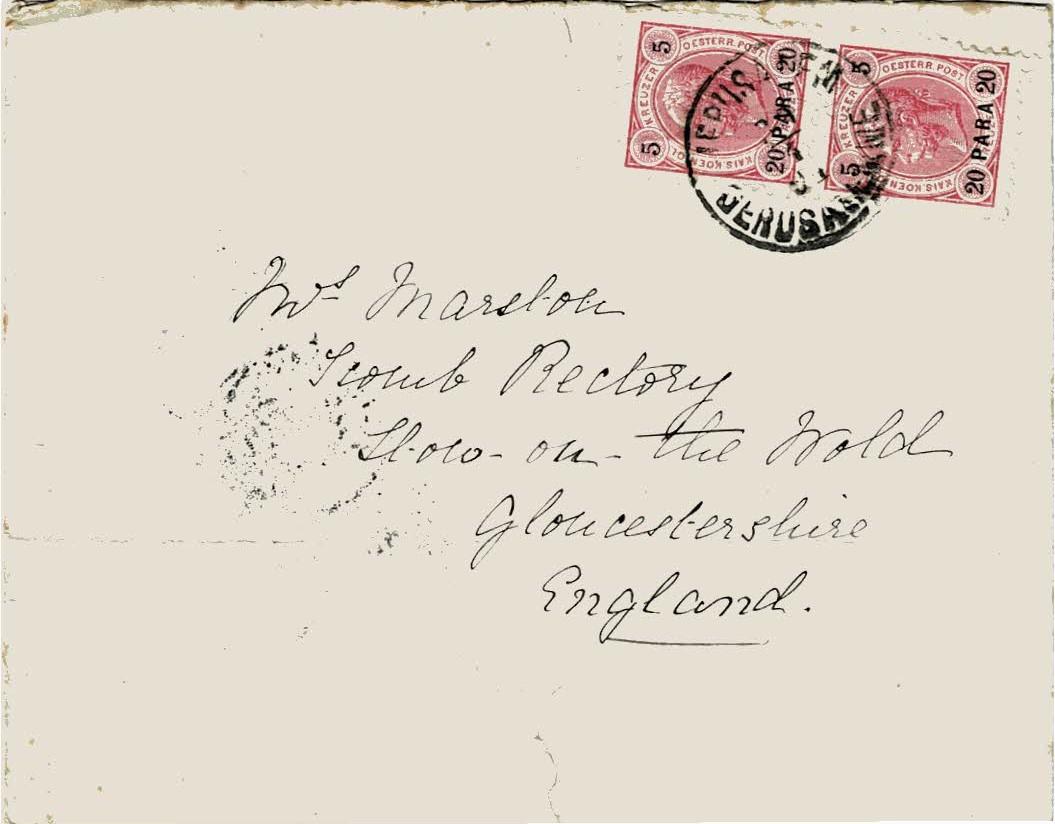 5 OESTERR. POST 20 PARA 20
KREUZER
5 KAIS. KOENIGL
5 OESTERR. POST 20 PARA 20
KREUZER
5 KAIS. KOENIGL
JERUSALEM
JERUSALEM
Mrs Marston
Icomb Rectory
Stow-on-the Wold
Gloucestershire
England.